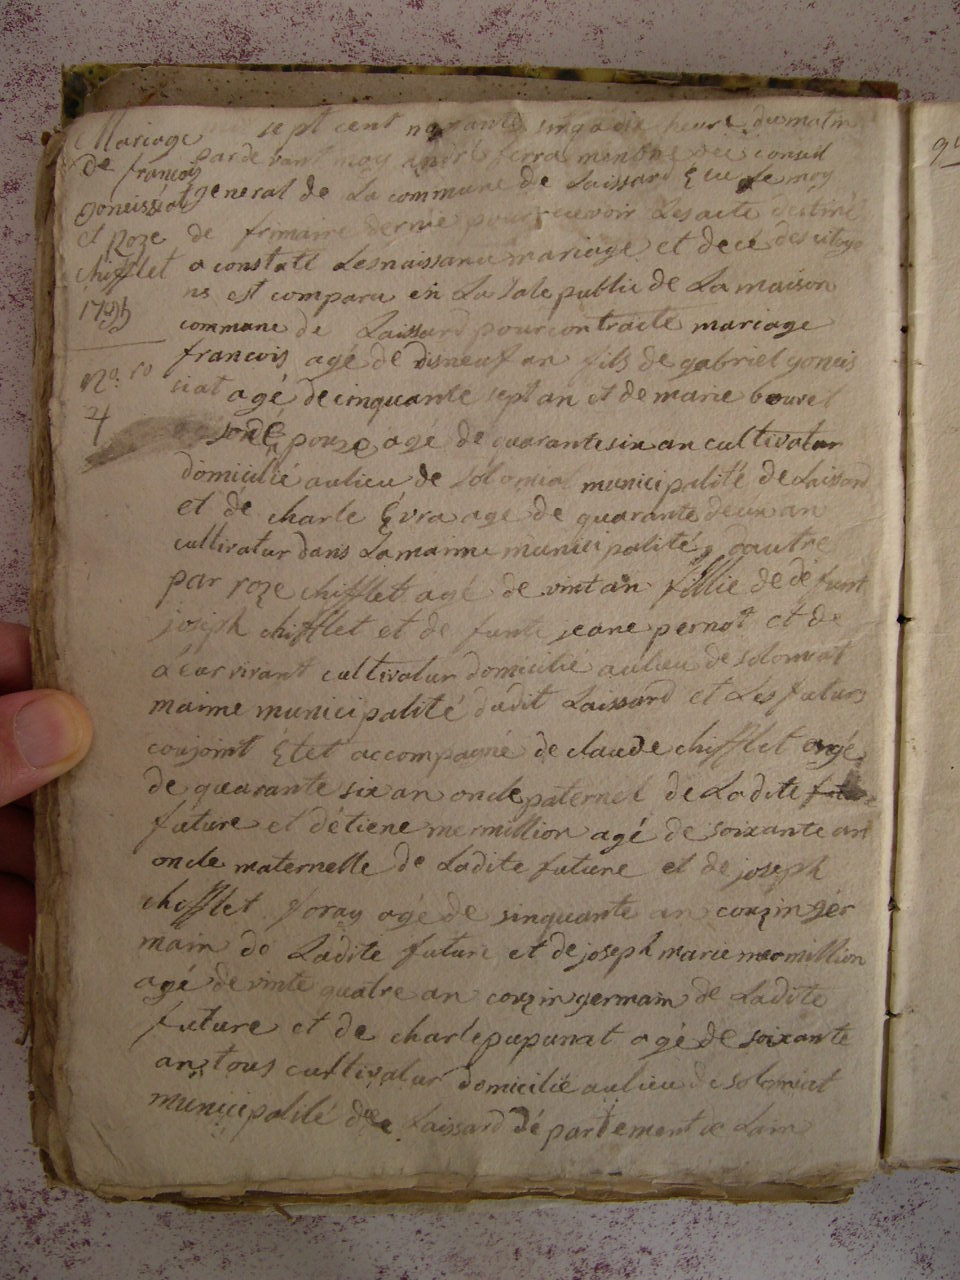 Mariage
De françois
goneissiat
et Roze
chifflet
1795
no. 10
4
sept cent nonante sinq a dix heure du matin
par de vant moy andré ferra membre conseil
general de La commune de Laissard Elu Le moy
de frimaire dernie pour recevoir Les acte destiné
a constaté Les naissance mariage et decé des citoye
ns est comparu en La Sale public de La maison
commune de Laissard pour contracté mariage
francois agé de disneuf an fils de gabriel goneis
siat agé de cinquante sept an et de marie bouvet
son épouze agé de quarante six an cultivatur
domicilié au lieu de Solomiat municipalité de Laissard
et de charle Evra age de quarante deux an
cultivatur dans La maime municipalité, d'autre
par roze chifflet agé de vint an fillie de de funt
joseph chifflet et de funte jeane pernot et de
Leur vivant cultivatur domicilié au lieu de solomiat
maime municipalité dudit Laissard et Les futurs
conjoint Etet accompagné de claude chifflet agé
de quarante six an oncle paternel de Ladite
future et d'étiene mermillion agé de soixante an
oncle maternelle de Ladite future et de joseph
chifflet foray agé de sinquante an couzin ger
main de Ladite future et de joseph marie mermillion
agé de vinte quatre an couzin germain de Ladite
future et de charle pupunat agé de soixante
an tous cultivatur domicilié au lieu de solomiat
municipalité de Laissard département de Lain